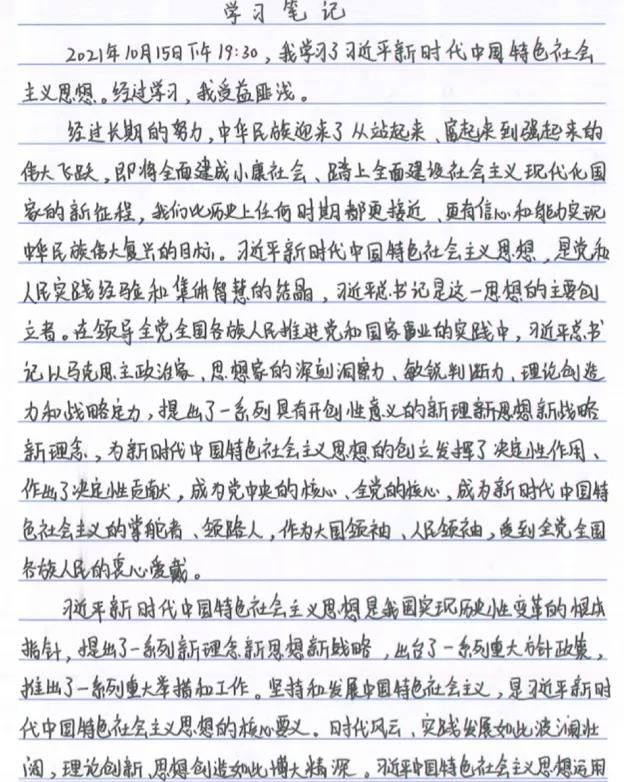 学习笔记
2021年10月15日下午19:30，我学习了习近平新时代中国特色社会
主义思想。经过学习，我受益匪浅。
经过长期的努力，中华民族迎来了从站起来、富起来到强起来的
伟大飞跃，即将全面建成小康社会、踏上全面建设社会主义现代化国
家的新征程，我们比历史上任何时期都更接近、更有信心和能力实现
中华民族伟大复兴的目标。习近平新时代中国特色社会主义思想，是党和
人民实践经验和集体智慧的结晶，习近平总书记是这一思想的主要创
立者。在领导全党全国各族人民推进党和国家事业的实践中，习近平总书
记以马克思主政治家、思想家的深刻洞察力、敏锐判断力、理论创造
力和战略定力，提出了一系列具有开创性意义的新理新思想新战略
新理念，为新时代中国特色社会主义思想的创立发挥了决定性作用、
作出了决定性贡献，成为党中央的核心、全党的核心，成为新时代中国特
色社会主义的掌舵者、领路人，作为大国领袖、人民领袖，受到全党全国
各族人民的衷心爱戴。
习近平新时代中国特色社会主义思想是我国实现历史性变革的根本
指针，提出了一系列新理念新思想新战略，出台了一系列重大方针政策，
推出了一系列重大举措和工作。坚持和发展中国特色社会主义，是习近平新时
代中国特色社会主义思想的核心要义。时代风云、实践发展如此波澜壮
阔，理论创新、思想创造如此博大精深。习近平中国特色社会主义思想运用